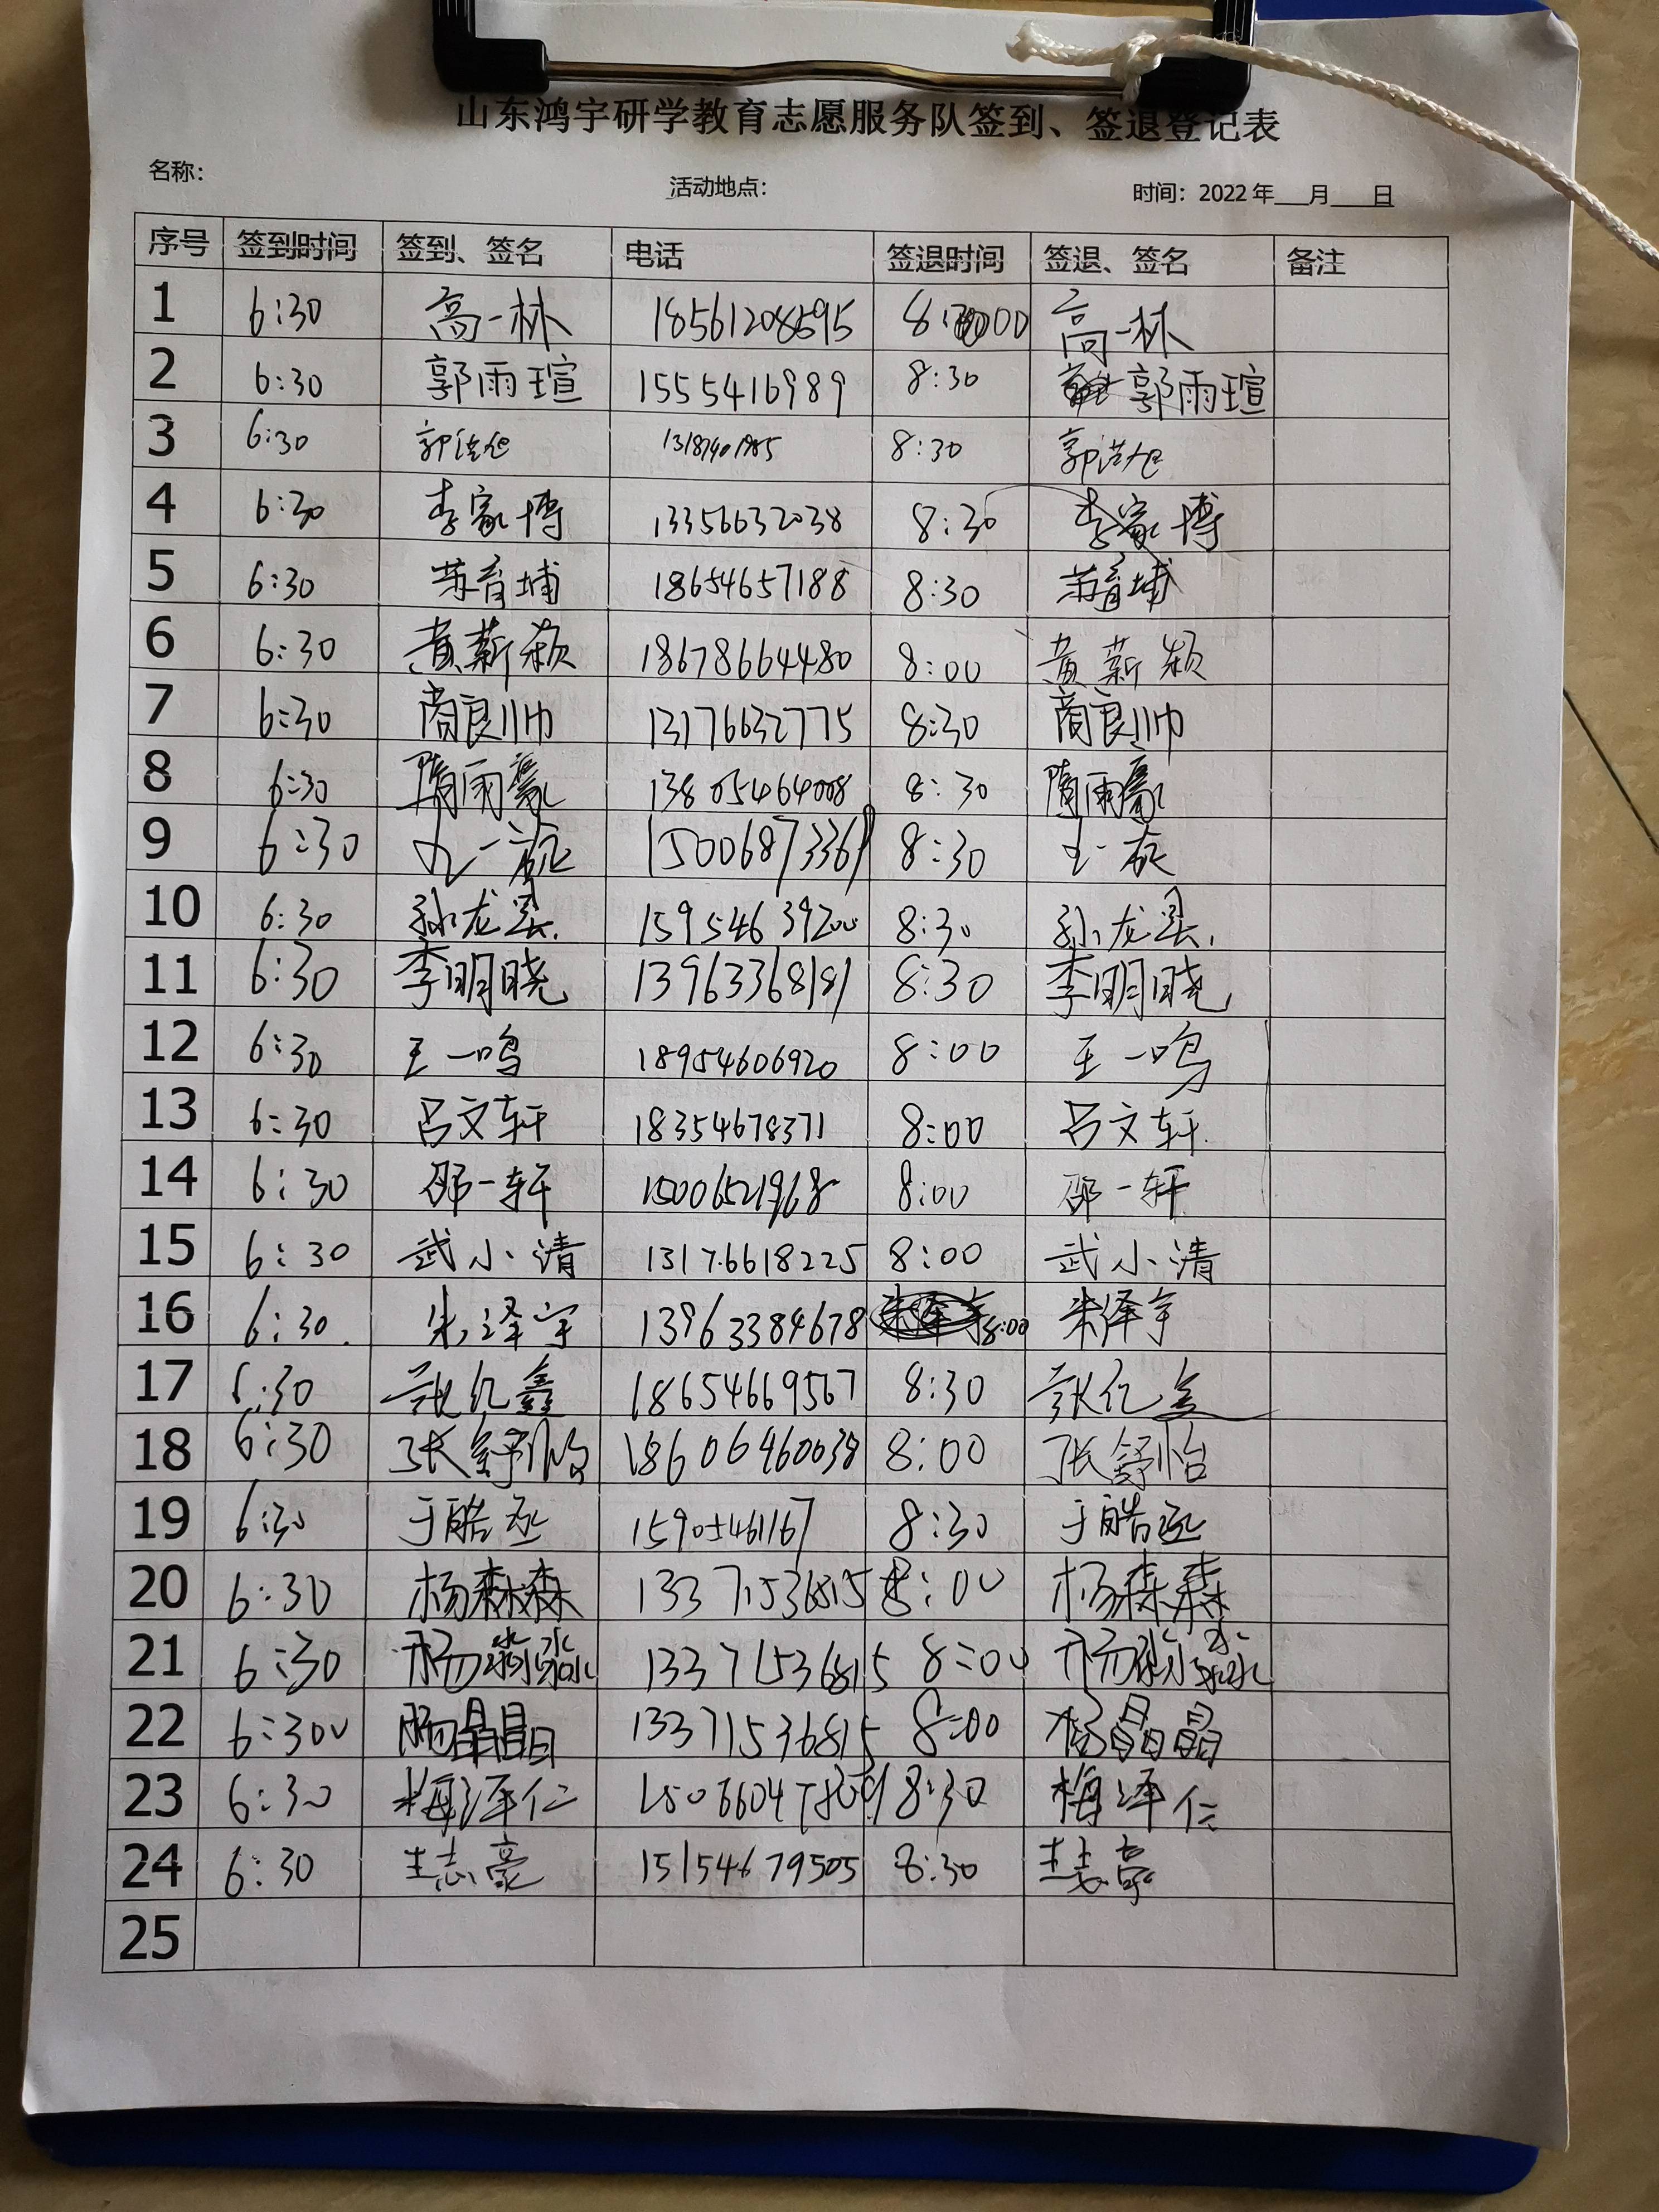 山东鸿宇研学教育志愿服务队签到、签退登记表
名称: 活动地点: 时间: 2022年___月___日
序号 签到时间 签到、签名 电话 签退时间 签退、签名 备注
1 6:30 高一林 8:00 高一林
2 6:30 郭雨瑄 1555416989 8:30 郭雨瑄
3 6:30 8:30
4 6:30 李家博 13356632038 8:30 李家博
5 6:30 苏育埔 18654657188 8:30 苏育埔
6 6:30 黄薪颖 18678664480 8:00 黄薪颖
7 6:30 商良帅 13176632775 8:30 商良帅
8 6:30 隋雨豪 13805464008 8:30 隋雨豪
9 6:30 15006873361 8:30
10 6:30 15954639200 8:30
11 6:30 李明晓 13963368181 8:30 李明晓
12 6:30 王一鸣 18954606920 8:00 王一鸣
13 6:30 吕文轩 18354678371 8:00 吕文轩
14 6:30 邵一轩 15006521968 8:00 邵一轩
15 6:30 武小清 13176618225 8:00 武小清
16 6:30 朱泽宇 13963384678 8:00 朱泽宇
17 6:30 张亿鑫 18654669567 8:30 张亿鑫
18 6:30 张舒怡 18606460038 8:00 张舒怡
19 6:30 于皓丞 15905461167 8:30 于皓丞
20 6:30 杨森森 13371536815 8:00 杨森森
21 6:30 杨淼淼 13371536815 8:00 杨淼淼
22 6:30 杨晶晶 13371536815 8:00 杨晶晶
23 6:30 梅泽仁 8:30 梅泽仁
24 6:30 王志豪 15154679505 8:30 王志豪
25